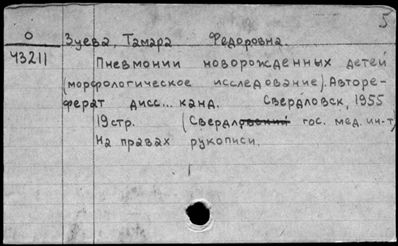 5
О Зуева, Тамара Федоровна.
43211 Пневмонии новорожденных детей
(морфологическое исследование). Авторе-
ферат дисс... канд. Свердловск, 1955
19 стр. (Свердловский гос. мед. ин-т)
На правах рукописи.